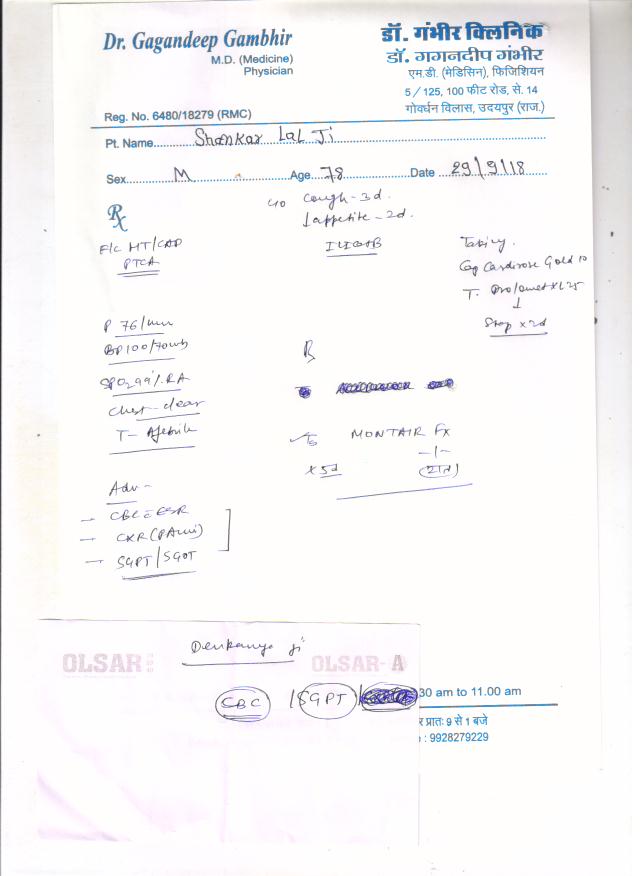 Dr. Gagandeep Gambhir
M.D. (Medicine)
Physician
Reg. No. 6480/18279 (RMC)
डॉ. गंभीर क्लिनिक
डॉ. गगनदीप गंभीर
एम.डी. (मेडिसिन), फिजिशियन
5 / 125, 100 फीट रोड, से. 14
गोवर्धन विलास, उदयपुर (राज.)
Pt. Name Shankar Lal Ji
Sex M Age 78 Date 29/9/18
Rx
c/o Cough - 3d.
↓appetite - 2d.
F/C HT/CAD
PTCA
Taking.
Cap Cardirose Gold 10
T. Prolomet XL 25
↓
Stop x 2d
P 76/min
BP 100/70
SPO2 99% RA
Chest - clear
T - Afebrile
MONTAIR FX
-1-
x 5d
(रात)
Adv -
- CBC c ESR
- CXR (PA
- SGPT/SGOT
OLSAR
OLSAR-A
ji
CBC / SGPT /
30 am to 11.00 am
र प्रातः 9 से 1 बजे
: 9928279229